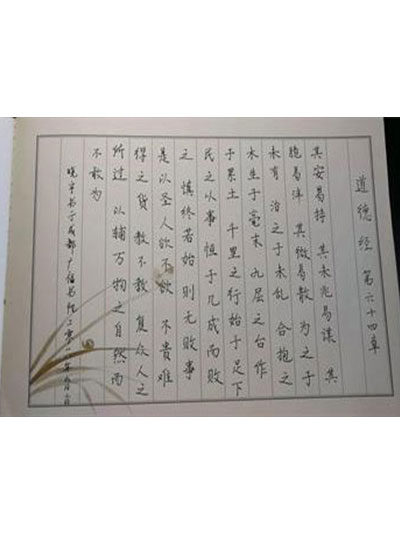 道德经 第六十四章
其安易持 其未兆易谋 其
脆易泮 其微易散 为之于
未有 治之于未乱 合抱之
木生于毫末 九层之台作
于累土 千里之行始于足下
民之从事 恒于几成而败
之 慎终若始 则无败事
是以圣人欲不欲 不贵难
得之货 教不教 复众人之
所过 以辅万物之自然而
不敢为
书于成都广信书院二零一